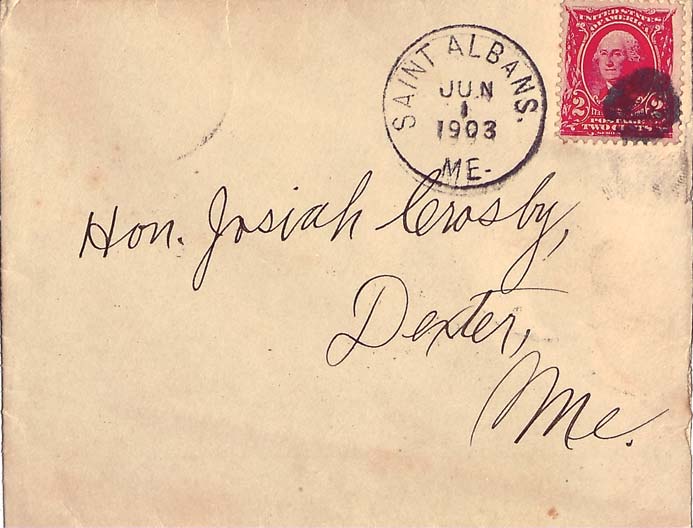 SAINT ALBANS.
JUN
1
1903
ME-
UNITED STATES
OF AMERICA
2 2
POSTAGE
TWO CENTS
Hon. Josiah Crosby,
Dexter,
Me.